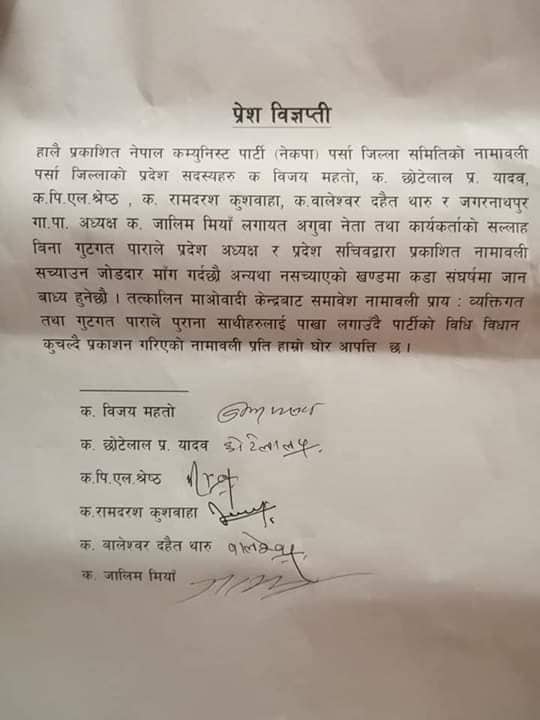 प्रेश विज्ञप्ती
हालै प्रकाशित नेपाल कम्युनिस्ट पार्टी (नेकपा) पर्सा जिल्ला समितिको नामावली
पर्सा जिल्लाको प्रदेश सदस्यहरु क विजय महतो, क. छोटेलाल प्र. यादव,
क.पि.एल.श्रेष्ठ , क. रामदरश कुशवाहा, क.वालेश्वर दहैत थारु र जगरनाथपुर
गा.पा. अध्यक्ष क. जालिम मियाँ लगायत अगुवा नेता तथा कार्यकर्ताको सल्लाह
विना गुटगत पाराले प्रदेश अध्यक्ष र प्रदेश सचिवद्वारा प्रकाशित नामावली
सच्याउन जोडदार माँग गर्दछौ अन्यथा नसच्याएको खण्डमा कडा संघर्षमा जान
बाध्य हुनेछौ । तत्कालिन माओवादी केन्द्रबाट समावेश नामावली प्राय : व्यक्तिगत
तथा गुटगत पाराले पुराना साथीहरुलाई पाखा लगाउँदै पार्टीको विधि विधान
कुचल्दै प्रकाशन गरिएको नामावली प्रति हाम्रो घोर आपत्ति छ ।
क. विजय महतो
क. छोटेलाल प्र. यादव छोटेलाल
क.पि.एल.श्रेष्ठ
क.रामदरश कुशवाहा
क. वालेश्वर दहैत थारु
क. जालिम मियाँ